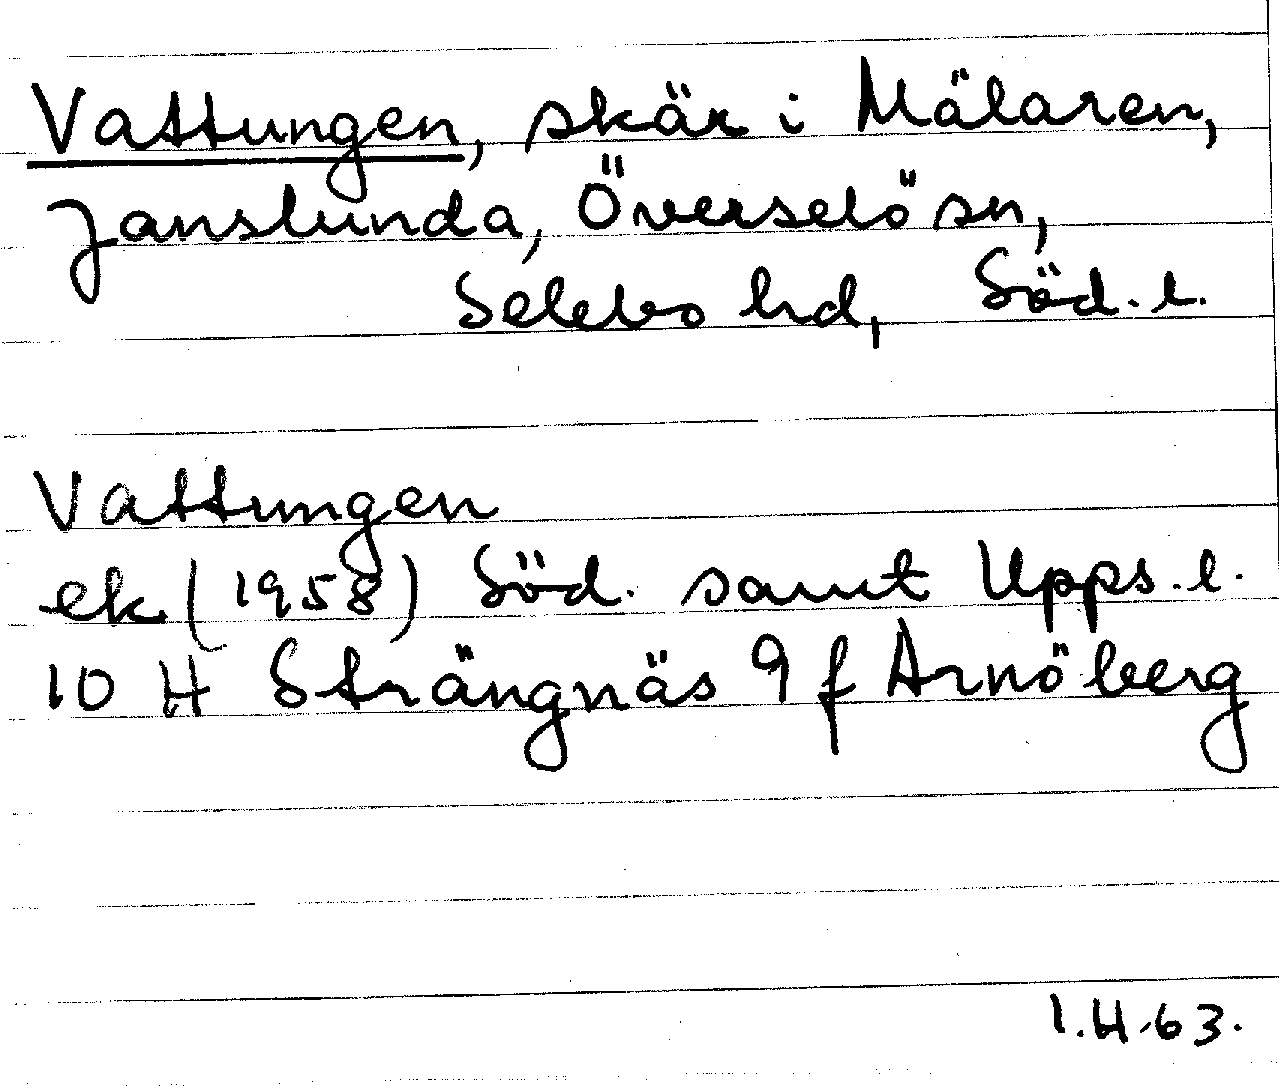 Vattungen, skär i Mälaren,
Janslunda, Överselö sn,
Selebo hd, Söd. l.
Vattungen
ek. (1958) Söd. samt Upps. l.
10 H Strängnäs 9 f Arnöberg
1.4.63.